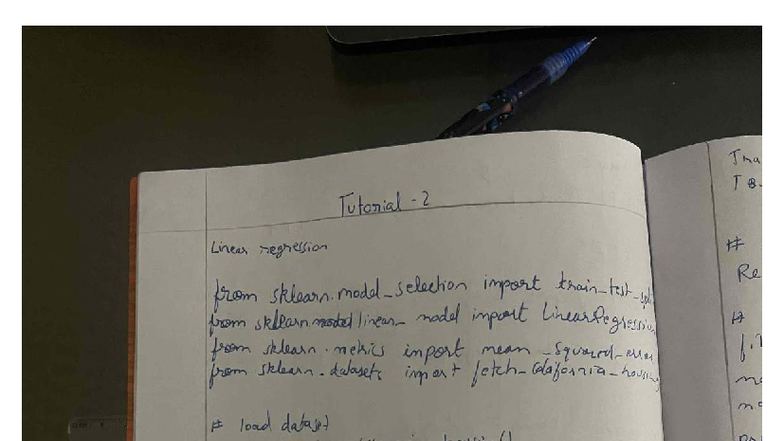 Tutorial - 2
Linear regression
from sklearn.model_selection import train_test_spli
from sklearn.linear_model import LinearRegression
from sklearn.metrics import mean_squared_error
from sklearn.datasets import fetch_california_housing
# load dataset
#
Re
#